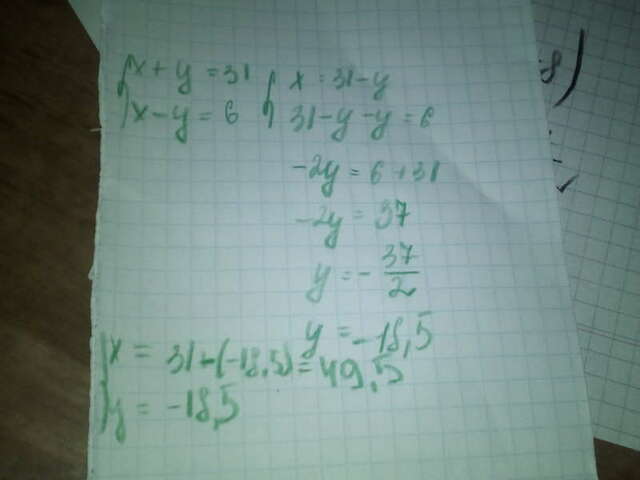 {x + y = 31 { x = 31 - y
{x - y = 6 { 31 - y - y = 6
-2y = 6 + 31
-2y = 37
y = - 37/2
y = -18,5
{x = 31 - (-18,5) = 49,5
{y = -18,5